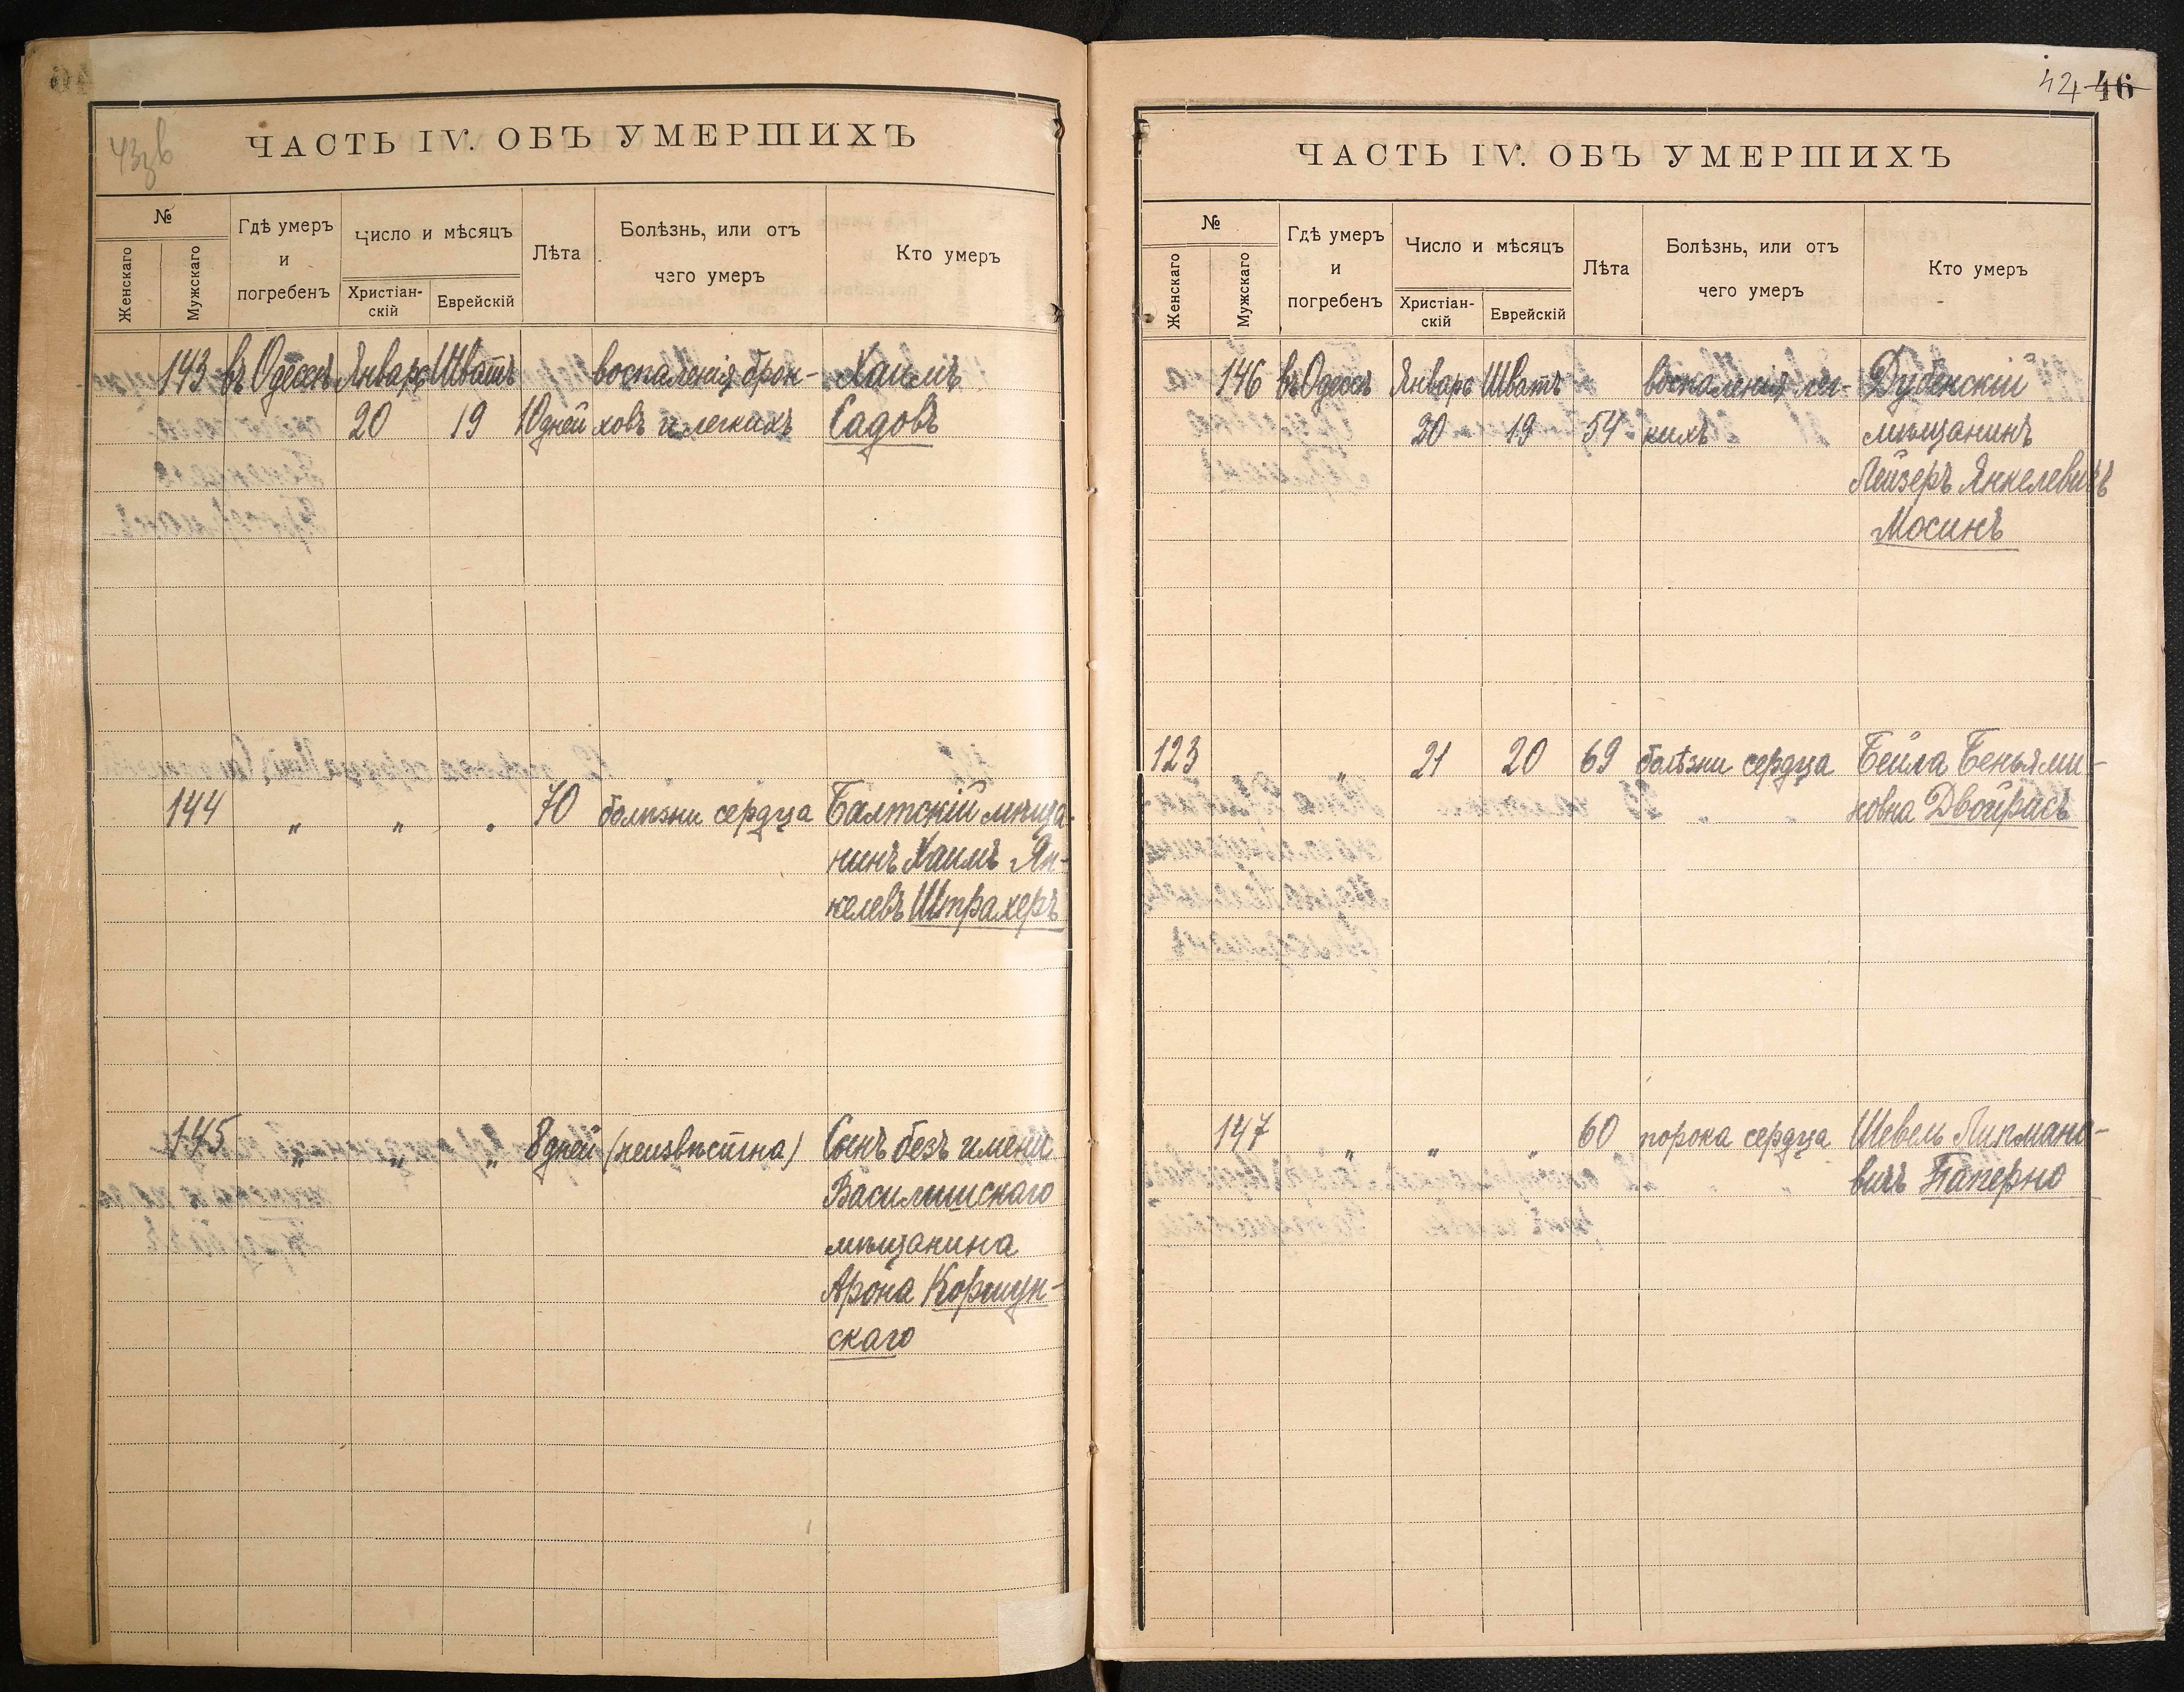 43зв
ЧАСТЬ IV. ОБЪ УМЕРШИХЪ
№
Женскаго
Мужскаго
Гдѣ умеръ
и
погребенъ
Число и мѣсяцъ
Христіан-
скій
Еврейскій
Лѣта
Болѣзнь, или отъ
чего умеръ
Кто умеръ
143 въ Одессѣ Январь Шватъ воспаленія брон- Хаимъ
20 19 10 дней ховъ и легкихъ Садовъ
144 " " " 70 болѣзни сердца Балтскій мѣща-
нинъ Хаимъ Ян-
келевъ Штрахеръ
145 " " " 8 дней (неизвѣстна) Сынъ безъ имени
Василишскаго
мѣщанина
Арона Коршун-
скаго
42 46
ЧАСТЬ IV. ОБЪ УМЕРШИХЪ
№
Женскаго
Мужскаго
Гдѣ умеръ
и
погребенъ
Число и мѣсяцъ
Христіан-
скій
Еврейскій
Лѣта
Болѣзнь, или отъ
чего умеръ
Кто умеръ
146 въ Одессѣ Январь Шватъ воспаленія лег- Дубенскій
20 19 54 кихъ мѣщанинъ
Лейзеръ Янкелевичъ
Мосинъ
123 " 21 20 69 болѣзни сердца Бейла Беньями-
новна Двойрисъ
147 " " " 60 порока сердца Шевель Липмано-
вичъ Паперно